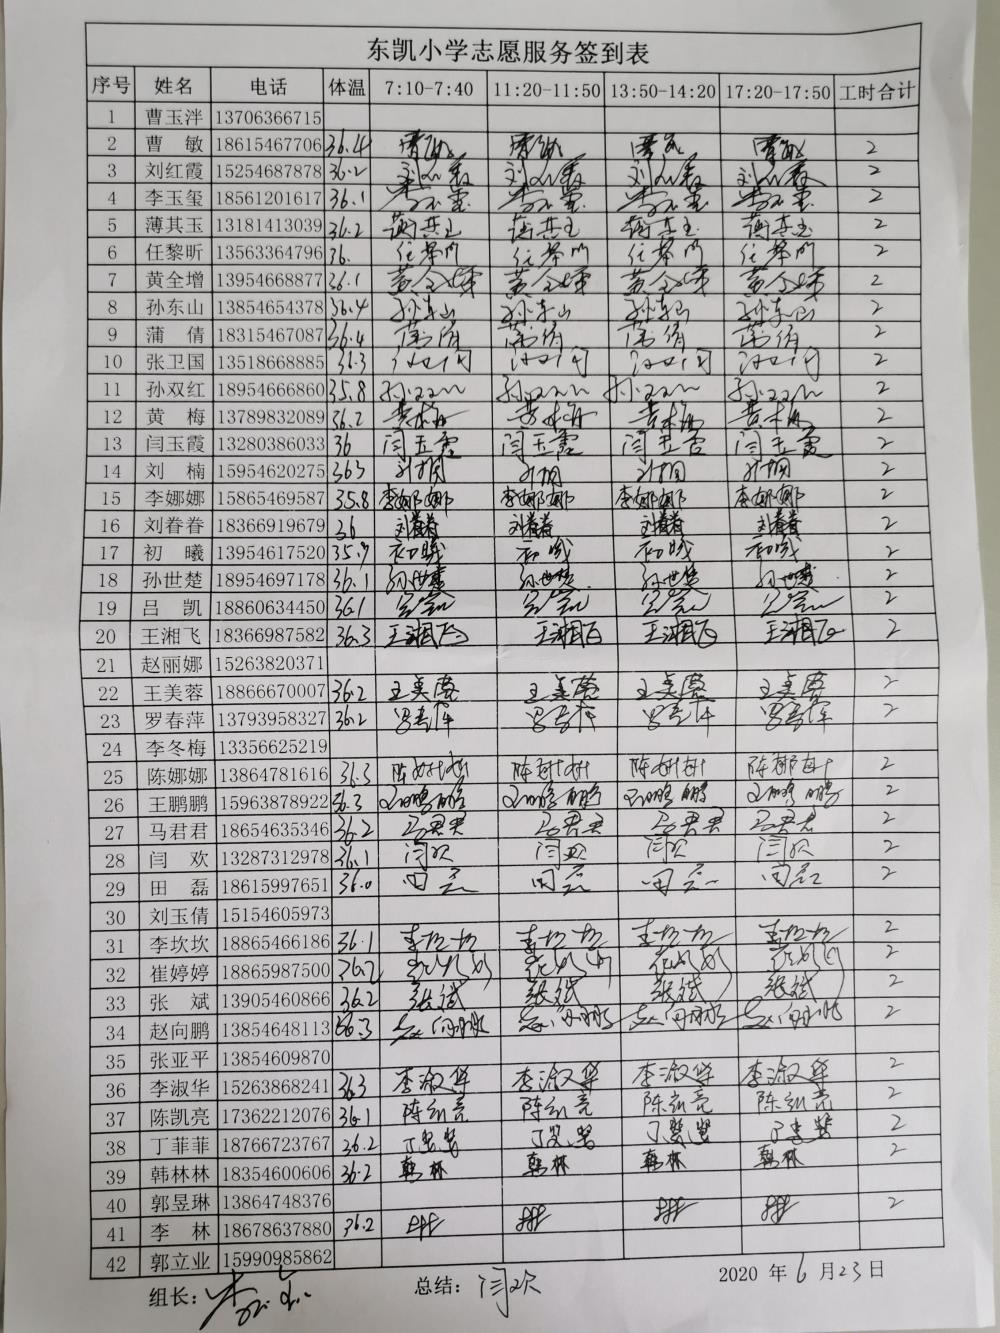 东凯小学志愿服务签到表
序号 姓名 电话 体温 7:10-7:40 11:20-11:50 13:50-14:20 17:20-17:50 工时合计
1 曹玉泮 13706366715
2 曹 敏 18615467706 36.4 曹敏 曹敏 曹敏 曹敏 2
3 刘红霞 15254687878 36.2 刘红霞 刘红霞 刘红霞 刘红霞 2
4 李玉玺 18561201617 36.1 李玉玺 李玉玺 李玉玺 李玉玺 2
5 薄其玉 13181413039 36.2 薄其玉 薄其玉 薄其玉 薄其玉 2
6 任黎昕 13563364796 36. 2
7 黄全增 13954668877 36.1 黄全增 黄全增 黄全增 黄全增 2
8 孙东山 13854654378 36.4 孙东山 孙东山 孙东山 孙东山 2
9 蒲 倩 18315467087 36.4 蒲倩 蒲倩 蒲倩 蒲倩 2
10 张卫国 13518668885 36.3 2
11 孙双红 18954666860 35.8 孙双红 孙双红 孙双红 孙双红 2
12 黄 梅 13789832089 36.2 黄梅 黄梅 黄梅 黄梅 2
13 闫玉霞 13280386033 36 闫玉霞 闫玉霞 闫玉霞 闫玉霞 2
14 刘 楠 15954620275 363 刘楠 刘楠 刘楠 刘楠 2
15 李娜娜 15865469587 35.8 李娜娜 李娜娜 李娜娜 李娜娜 2
16 刘眷眷 18366919679 36 刘眷眷 刘眷眷 刘眷眷 刘眷眷 2
17 初 曦 13954617520 35.7 初曦 初曦 初曦 初曦 2
18 孙世楚 18954697178 36.1 孙世楚 孙世楚 孙世楚 孙世楚 2
19 吕 凯 18860634450 36.1 吕凯 吕凯 吕凯 吕凯 2
20 王湘飞 18366987582 36.3 王湘飞 王湘飞 王湘飞 王湘飞 2
21 赵丽娜 15263820371
22 王美蓉 18866670007 36.2 王美蓉 王美蓉 王美蓉 王美蓉 2
23 罗春萍 13793958327 36.2 罗春萍 罗春萍 罗春萍 罗春萍 2
24 李冬梅 13356625219
25 陈娜娜 13864781616 36.3 陈娜娜 陈娜娜 陈娜娜 陈娜娜 2
26 王鹏鹏 15963878922 36.3 王鹏鹏 王鹏鹏 王鹏鹏 王鹏鹏 2
27 马君君 18654635346 36.2 马君君 马君君 马君君 马君君 2
28 闫 欢 13287312978 36.1 闫欢 闫欢 闫欢 闫欢 2
29 田 磊 18615997651 36.0 田磊 田磊 田磊 田磊 2
30 刘玉倩 15154605973
31 李坎坎 18865466186 36.1 李坎坎 李坎坎 李坎坎 李坎坎 2
32 崔婷婷 18865987500 36.2 2
33 张 斌 13905460866 36.2 张斌 张斌 张斌 张斌 2
34 赵向鹏 13854648113 36.3 赵向鹏 赵向鹏 赵向鹏 赵向鹏 2
35 张亚平 13854609870
36 李淑华 15263868241 36.3 李淑华 李淑华 李淑华 李淑华 2
37 陈凯亮 17362212076 36.1 陈凯亮 陈凯亮 陈凯亮 陈凯亮 2
38 丁菲菲 18766723767 36.2 丁菲菲 丁菲菲 丁菲菲 丁菲菲 2
39 韩林林 18354600606 36.2 韩林 韩林 韩林 韩林 2
40 郭昱琳 13864748376
41 李 林 18678637880 36.2 2
42 郭立业 15990985862
组长: 总结: 闫欢 2020 年 6 月 23 日